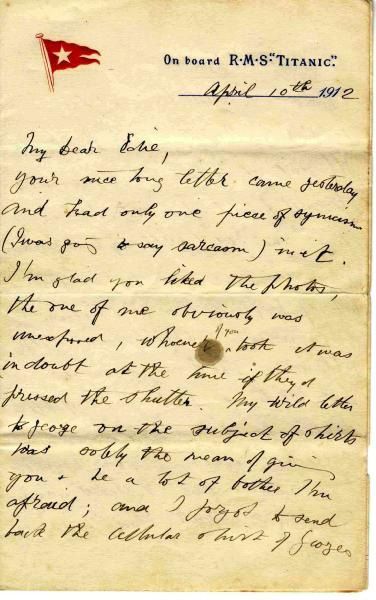 On board R·M·S·"TITANIC".
April 10th 1912
My Dear Edie,
your nice long letter came yesterday
and had only one piece of
(I was going to say sarcasm) in it.
I'm glad you liked the photos,
the one of me obviously was
unexposed, whoever if you took it was
in doubt at the time if they'd
pressed the shutter. My wild letter
to George on the subject of shirts
was solely the mean of giving
you & he a lot of bother I'm
afraid; and I forgot to send
back the cellular shirt of Georges